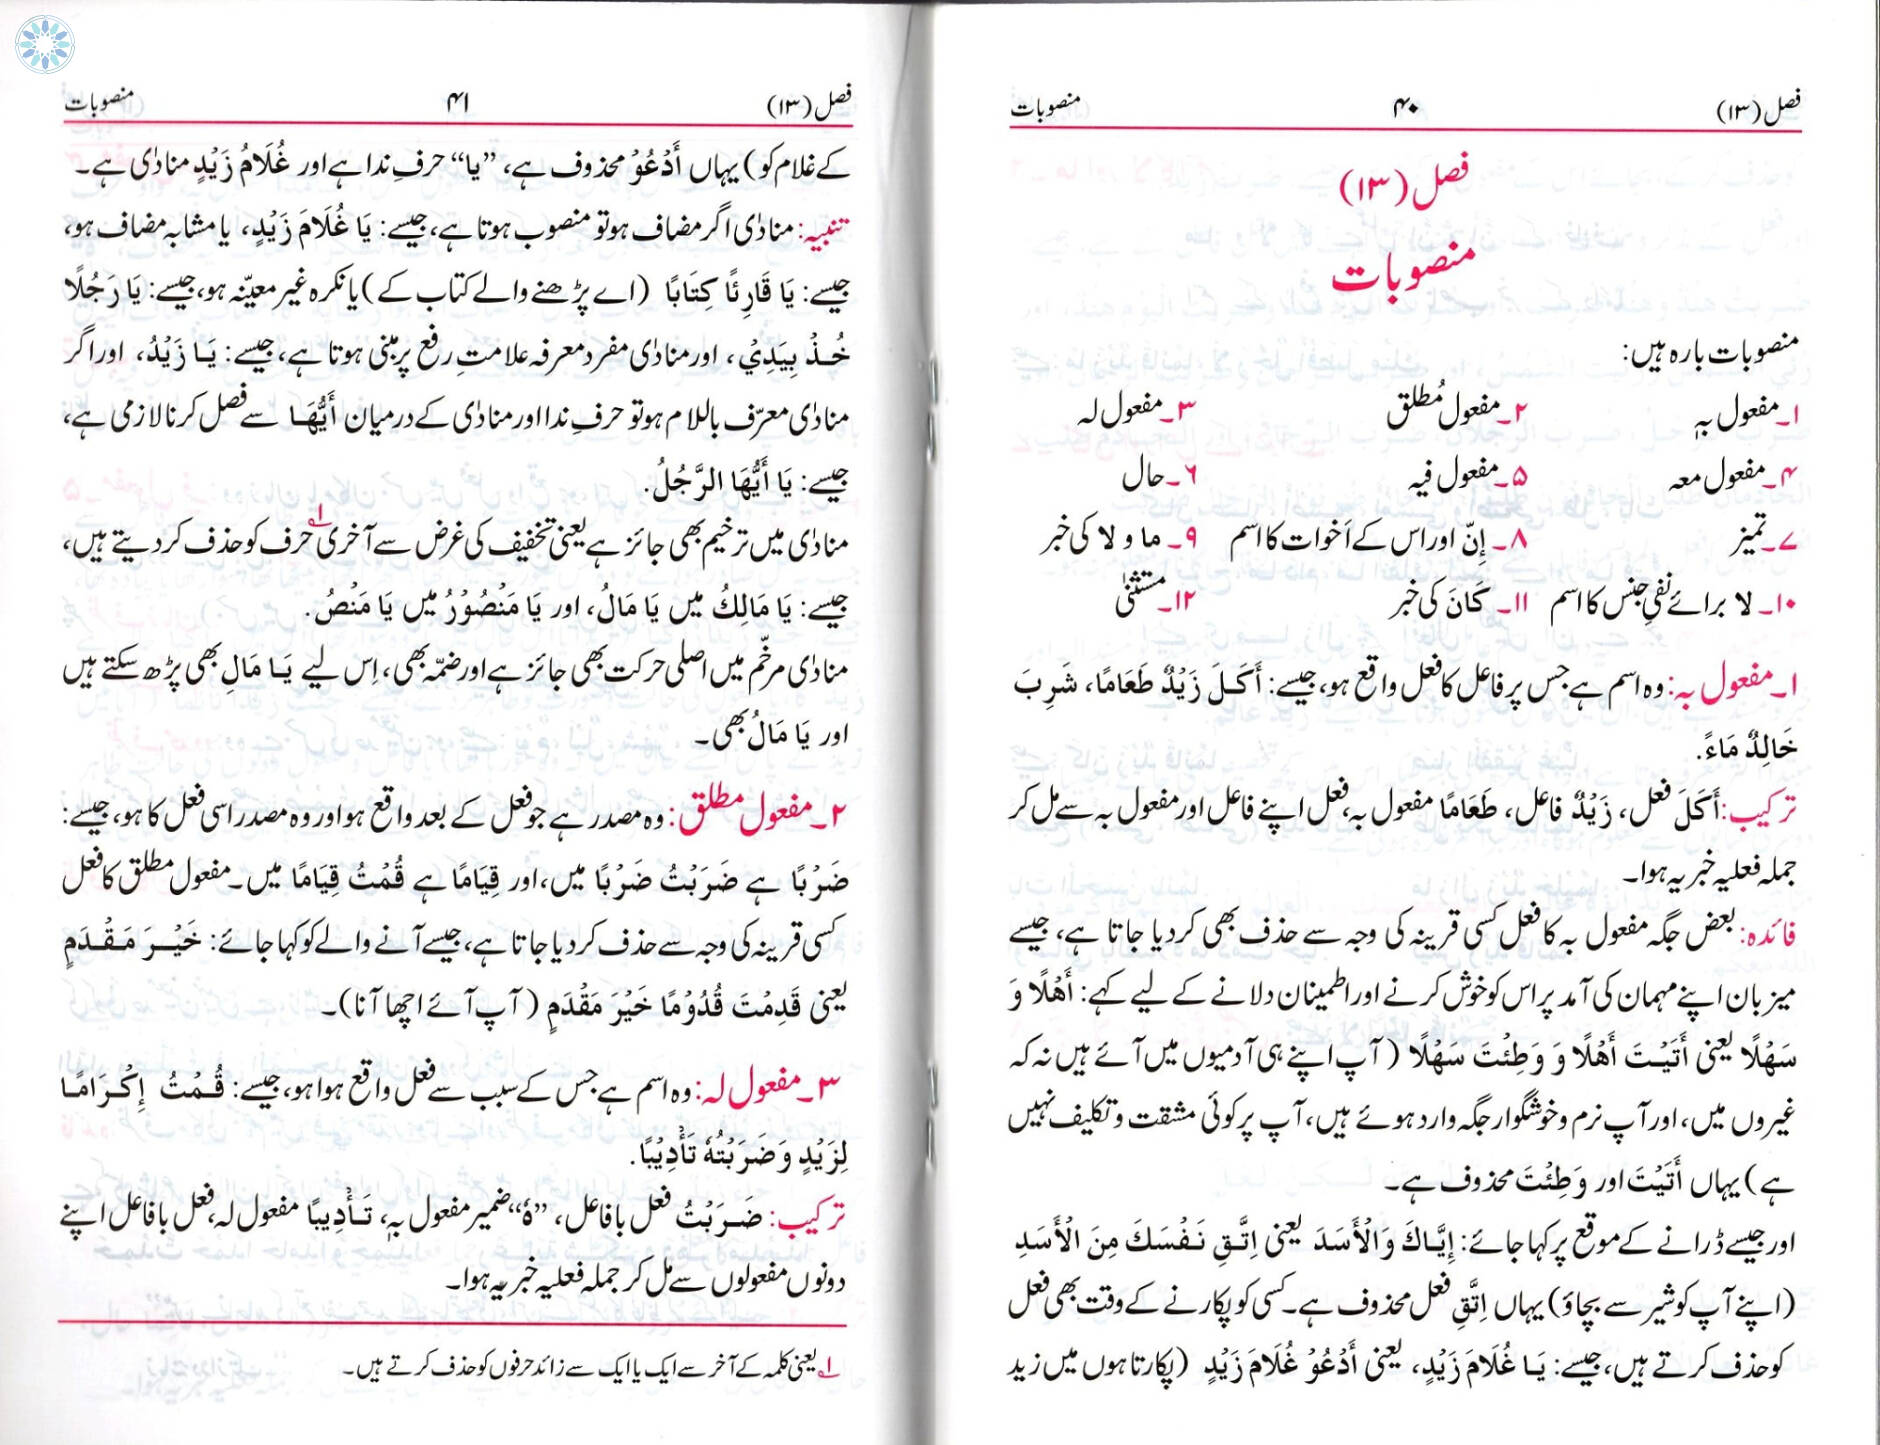 فصل (۱۳) ۴۰ منصوبات
فصل (۱۳)
منصوبات
منصوبات بارہ ہیں:
۱۔ مفعول بہٖ ۲۔ مفعول مُطلق ۳۔ مفعول لہ
۴۔ مفعول معہ ۵۔ مفعول فیہ ۶۔ حال
۷۔ تمیز ۸۔ إِنّ اور اس کے اَخوات کا اسم ۹۔ ما و لا کی خبر
۱۰۔ لا برائے نفیِ جنس کا اسم ۱۱۔ كَانَ کی خبر ۱۲۔ مستثنیٰ
۱۔ مفعول بہ: وہ اسم ہے جس پر فاعل کا فعل واقع ہو، جیسے: أَكَلَ زَيْدٌ طَعَامًا، شَرِبَ
خَالِدٌ مَاءً.
ترکیب: أَكَلَ فعل، زَيْدٌ فاعل، طَعَامًا مفعول بہ، فعل اپنے فاعل اور مفعول بہ سے مل کر
جملہ فعلیہ خبریہ ہوا۔
فائدہ: بعض جگہ مفعول بہ کا فعل کسی قرینہ کی وجہ سے حذف بھی کردیا جاتا ہے، جیسے
میزبان اپنے مہمان کی آمد پر اس کو خوش کرنے اور اطمینان دلانے کے لیے کہے: أَهْلًا وَ
سَهْلًا یعنی أَتَيْتَ أَهْلًا وَ وَطِئْتَ سَهْلًا (آپ اپنے ہی آدمیوں میں آئے ہیں نہ کہ
غیروں میں، اور آپ نرم وخوشگوار جگہ وارد ہوئے ہیں، آپ پر کوئی مشقت وتکلیف نہیں
ہے) یہاں أَتَيْتَ اور وَطِئْتَ محذوف ہے۔
اور جیسے ڈرانے کے موقع پر کہا جائے: إِيَّاكَ وَالْأَسَدَ یعنی اِتَّقِ نَفْسَكَ مِنَ الْأَسَدِ
(اپنے آپ کو شیر سے بچاؤ) یہاں اِتَّقِ فعل محذوف ہے۔ کسی کو پکارنے کے وقت بھی فعل
کو حذف کرتے ہیں، جیسے: يَا غُلَامَ زَيْدٍ، یعنی أَدْعُوْ غُلَامَ زَيْدٍ (پکارتا ہوں میں زید
فصل (۱۳) ۴۱ منصوبات
کے غلام کو) یہاں أَدْعُوْ محذوف ہے، ”یا“ حرفِ ندا ہے اور غُلَامُ زَيْدٍ منادٰی ہے۔
تنبیہ: منادٰی اگر مضاف ہو تو منصوب ہوتا ہے، جیسے: يَا غُلَامَ زَيْدٍ، یا مشابہ مضاف ہو،
جیسے: يَا قَارِئًا كِتَابًا (اے پڑھنے والے کتاب کے) یا نکرہ غیر معیّنہ ہو، جیسے: يَا رَجُلًا
خُذْ بِيَدِيْ، اور منادٰی مفرد معرفہ علامتِ رفع پر مبنی ہوتا ہے، جیسے: يَا زَيْدُ، اور اگر
منادٰی معرّف باللام ہو تو حرفِ ندا اور منادٰی کے درمیان أَيُّهَا سے فصل کرنا لازمی ہے،
جیسے: يَا أَيُّهَا الرَّجُلُ.
منادٰی میں ترخیم بھی جائز ہے یعنی تخفیف کی غرض سے آخری۱؎ حرف کو حذف کر دیتے ہیں،
جیسے: يَا مَالِكُ میں يَا مَالُ، اور يَا مَنْصُوْرُ میں يَا مَنْصُ.
منادٰی مرخّم میں اصلی حرکت بھی جائز ہے اور ضمّہ بھی، اِس لیے يَا مَالِ بھی پڑھ سکتے ہیں
اور يَا مَالُ بھی۔
۲۔ مفعول مطلق: وہ مصدر ہے جو فعل کے بعد واقع ہو اور وہ مصدر اسی فعل کا ہو، جیسے:
ضَرْبًا ہے ضَرَبْتُ ضَرْبًا میں، اور قِيَامًا ہے قُمْتُ قِيَامًا میں۔ مفعول مطلق کا فعل
کسی قرینہ کی وجہ سے حذف کردیا جاتا ہے، جیسے آنے والے کو کہا جائے: خَيْرَ مَقْدَمٍ
یعنی قَدِمْتَ قُدُوْمًا خَيْرَ مَقْدَمٍ (آپ آئے اچھا آنا)۔
۳۔ مفعول لہ: وہ اسم ہے جس کے سبب سے فعل واقع ہوا ہو، جیسے: قُمْتُ إِكْرَامًا
لِزَيْدٍ وَضَرَبْتُهٗ تَأْدِيْبًا.
ترکیب: ضَرَبْتُ فعل بافاعل، ”هٗ“ ضمیر مفعول بہٖ، تَأْدِيبًا مفعول لہ، فعل بافاعل اپنے
دونوں مفعولوں سے مل کر جملہ فعلیہ خبریہ ہوا۔
۱؎ یعنی کلمہ کے آخر سے ایک یا ایک سے زائد حرفوں کو حذف کرتے ہیں۔